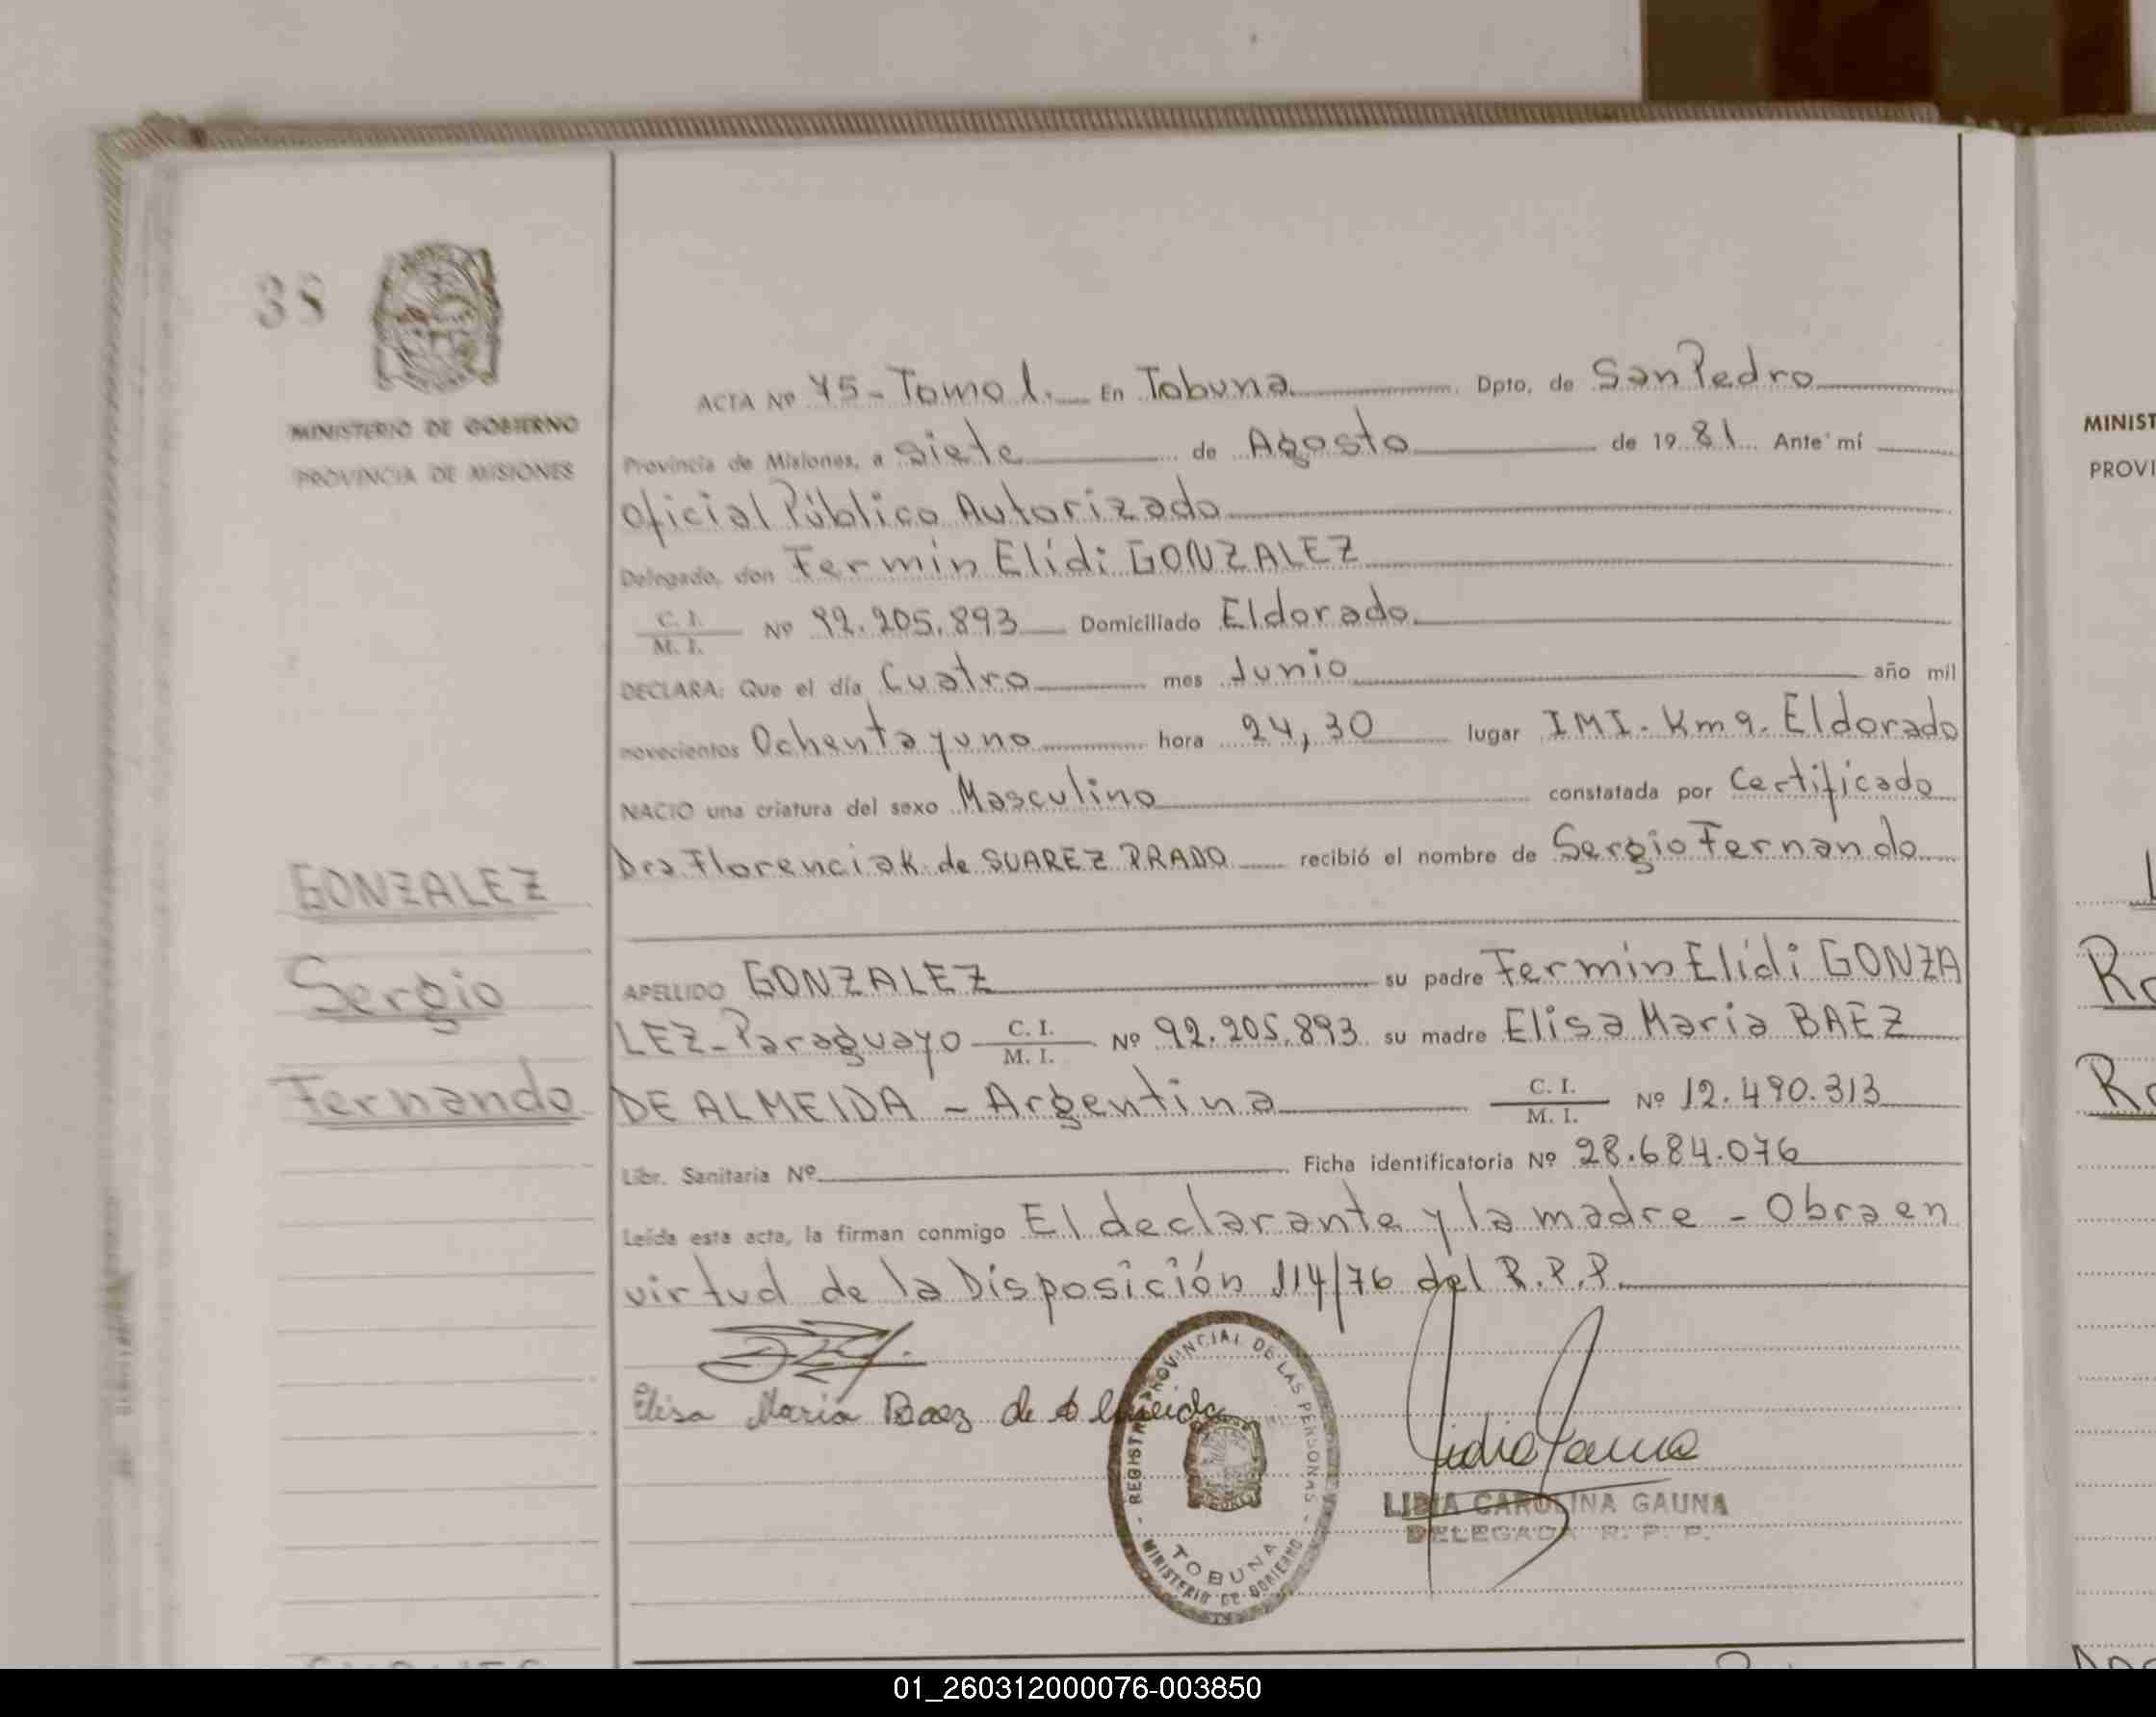 38
MINISTERIO DE GOBIERNO
PROVINCIA DE MISIONES
GONZALEZ
Sergio
Fernando
ACTA Nº 75 - Tomo I. En Tobuna Dpto. de San Pedro
Provincia de Misiones, a siete de Agosto de 1981 Ante mí
Oficial Público Autorizado
Delegado, don Fermin Elidi GONZALEZ
C. I.
M. I. Nº 92.205.893 Domiciliado Eldorado
DECLARA: Que el día Cuatro mes Junio año mil
novecientos Ochenta y uno hora 24,30 lugar IMI. Km 9. Eldorado
NACIO una criatura del sexo Masculino constatada por Certificado
Dra Florencia K. de SUAREZ PRADO recibió el nombre de Sergio Fernando
APELLIDO GONZALEZ su padre Fermin Elidi GONZA
LEZ - Paraguayo C. I. M. I. Nº 92.205.893 su madre Elisa Maria BAEZ
DE ALMEIDA - Argentina C. I. M. I. Nº 12.490.313
Libr. Sanitaria Nº Ficha identificatoria Nº 28.684.076
Leída esta acta, la firman conmigo El declarante y la madre - Obra en
virtud de la Disposición 114/76 del R.P.P.
Elisa Maria Baez de Almeida
REGISTRO PROVINCIAL DE LAS PERSONAS
TOBUNA
MINISTERIO DE GOBIERNO
Lidia Gauna
LIDIA CAROLINA GAUNA
DELEGADA R. P. P.
MINIST
PROVI
01_260312000076-003850